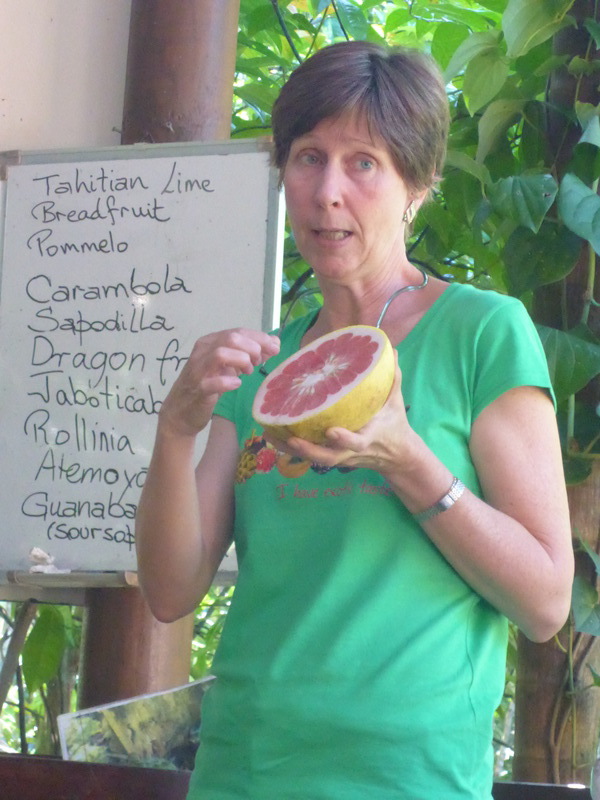 Tahitian Lime
Breadfruit
Pommelo
Carambola
Sapodilla
Dragon fr
Jaboticab
Rollinia
Atemoya
Guanaba
(soursop
I love